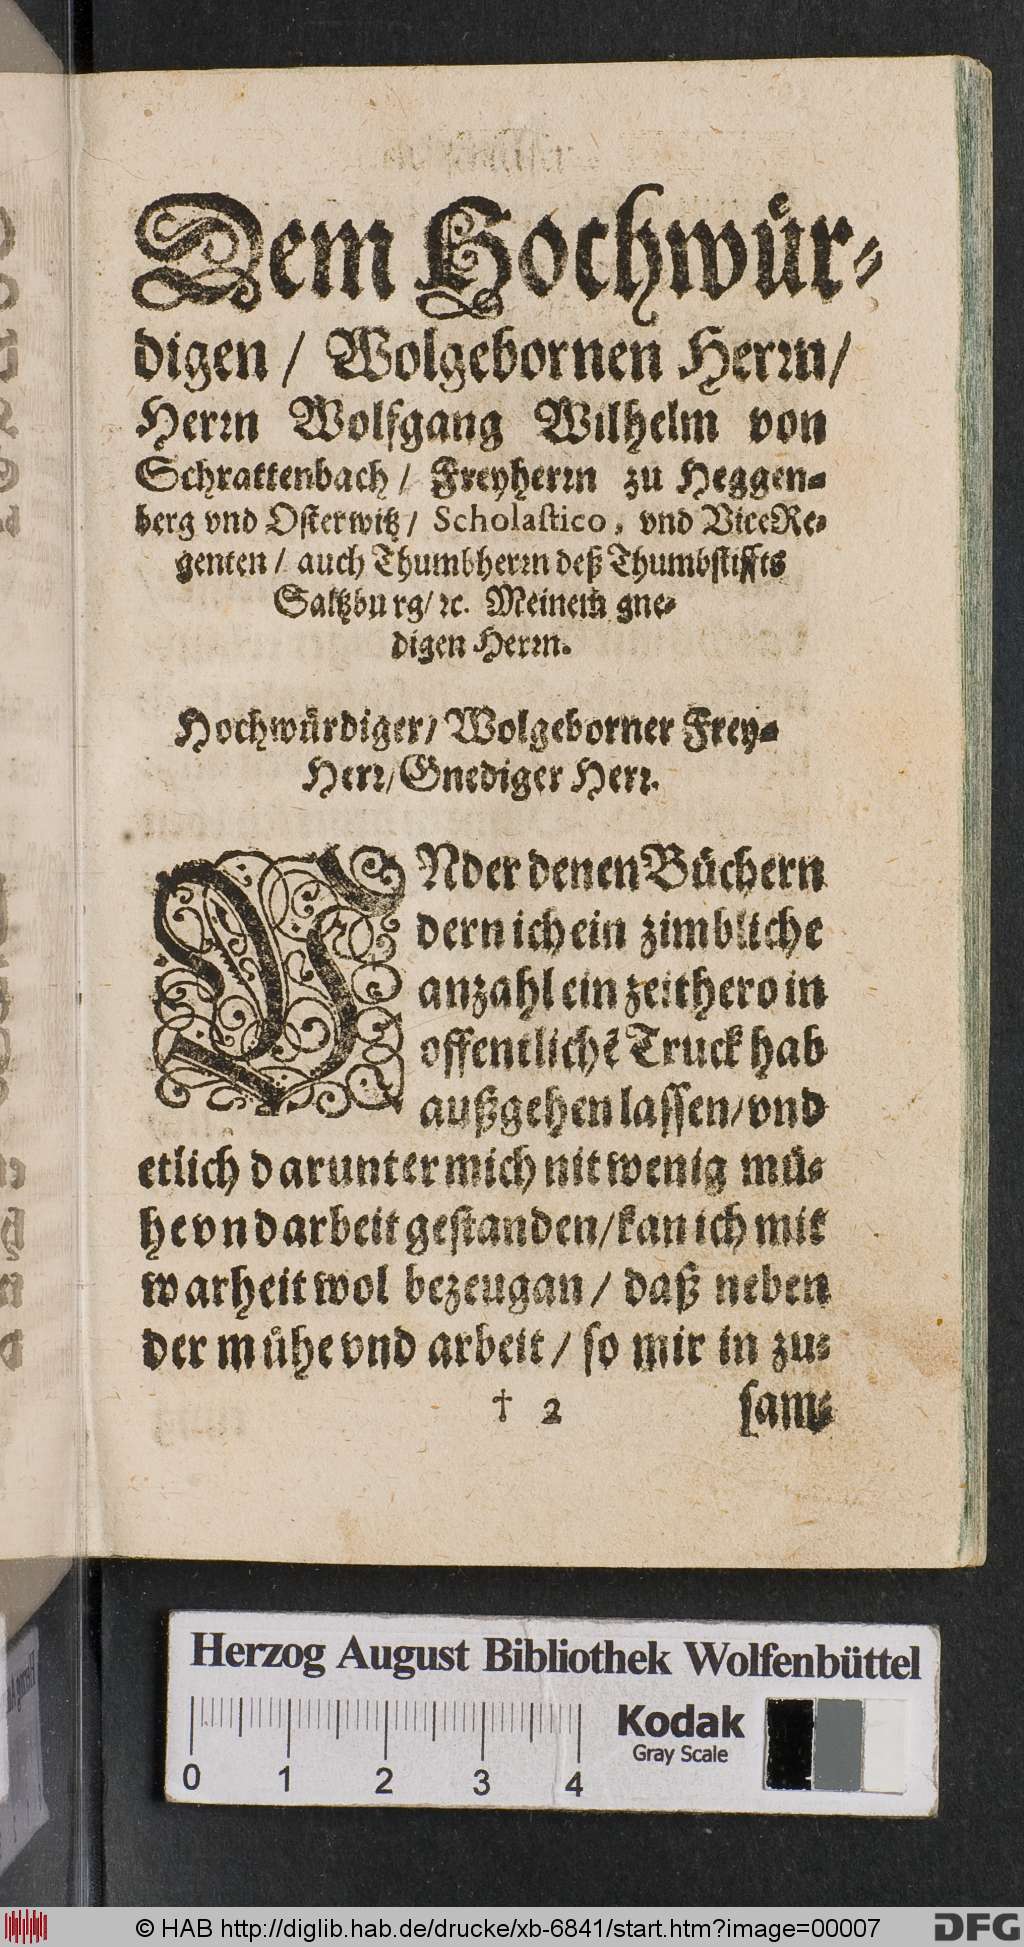 Dem Hochwuͤr-
digen / Wolgebornen Herꝛn /
Herꝛn Wolfgang Wilhelm von
Schrattenbach / Freyherꝛn zu Heggen-
berg vnd Osterwitz / Scholastico, vnd ViceRe-
genten / auch Thumbherꝛn deß Thumbstiffts
Saltzburg / ꝛc. Meinem gne-
digen Herꝛn.
Hochwuͤrdiger / Wolgeborner Frey-
Herꝛ / Gnediger Herꝛ.
VNder denen Buͤchern
dern ich ein zimbliche
anzahl ein zeithero in
offentlichẽ Truck hab
außgehen lassen / vnd
etlich darunter mich nit wenig muͤ-
he vnd arbeit gestanden / kan ich mit
warheit wol bezeugan / daß neben
der muͤhe vnd arbeit / so mir in zu-
† 2 sam-
Herzog August Bibliothek Wolfenbüttel
Kodak
Gray Scale
0 1 2 3 4
© HAB http://diglib.hab.de/drucke/xb-6841/start.htm?image=00007 DFG